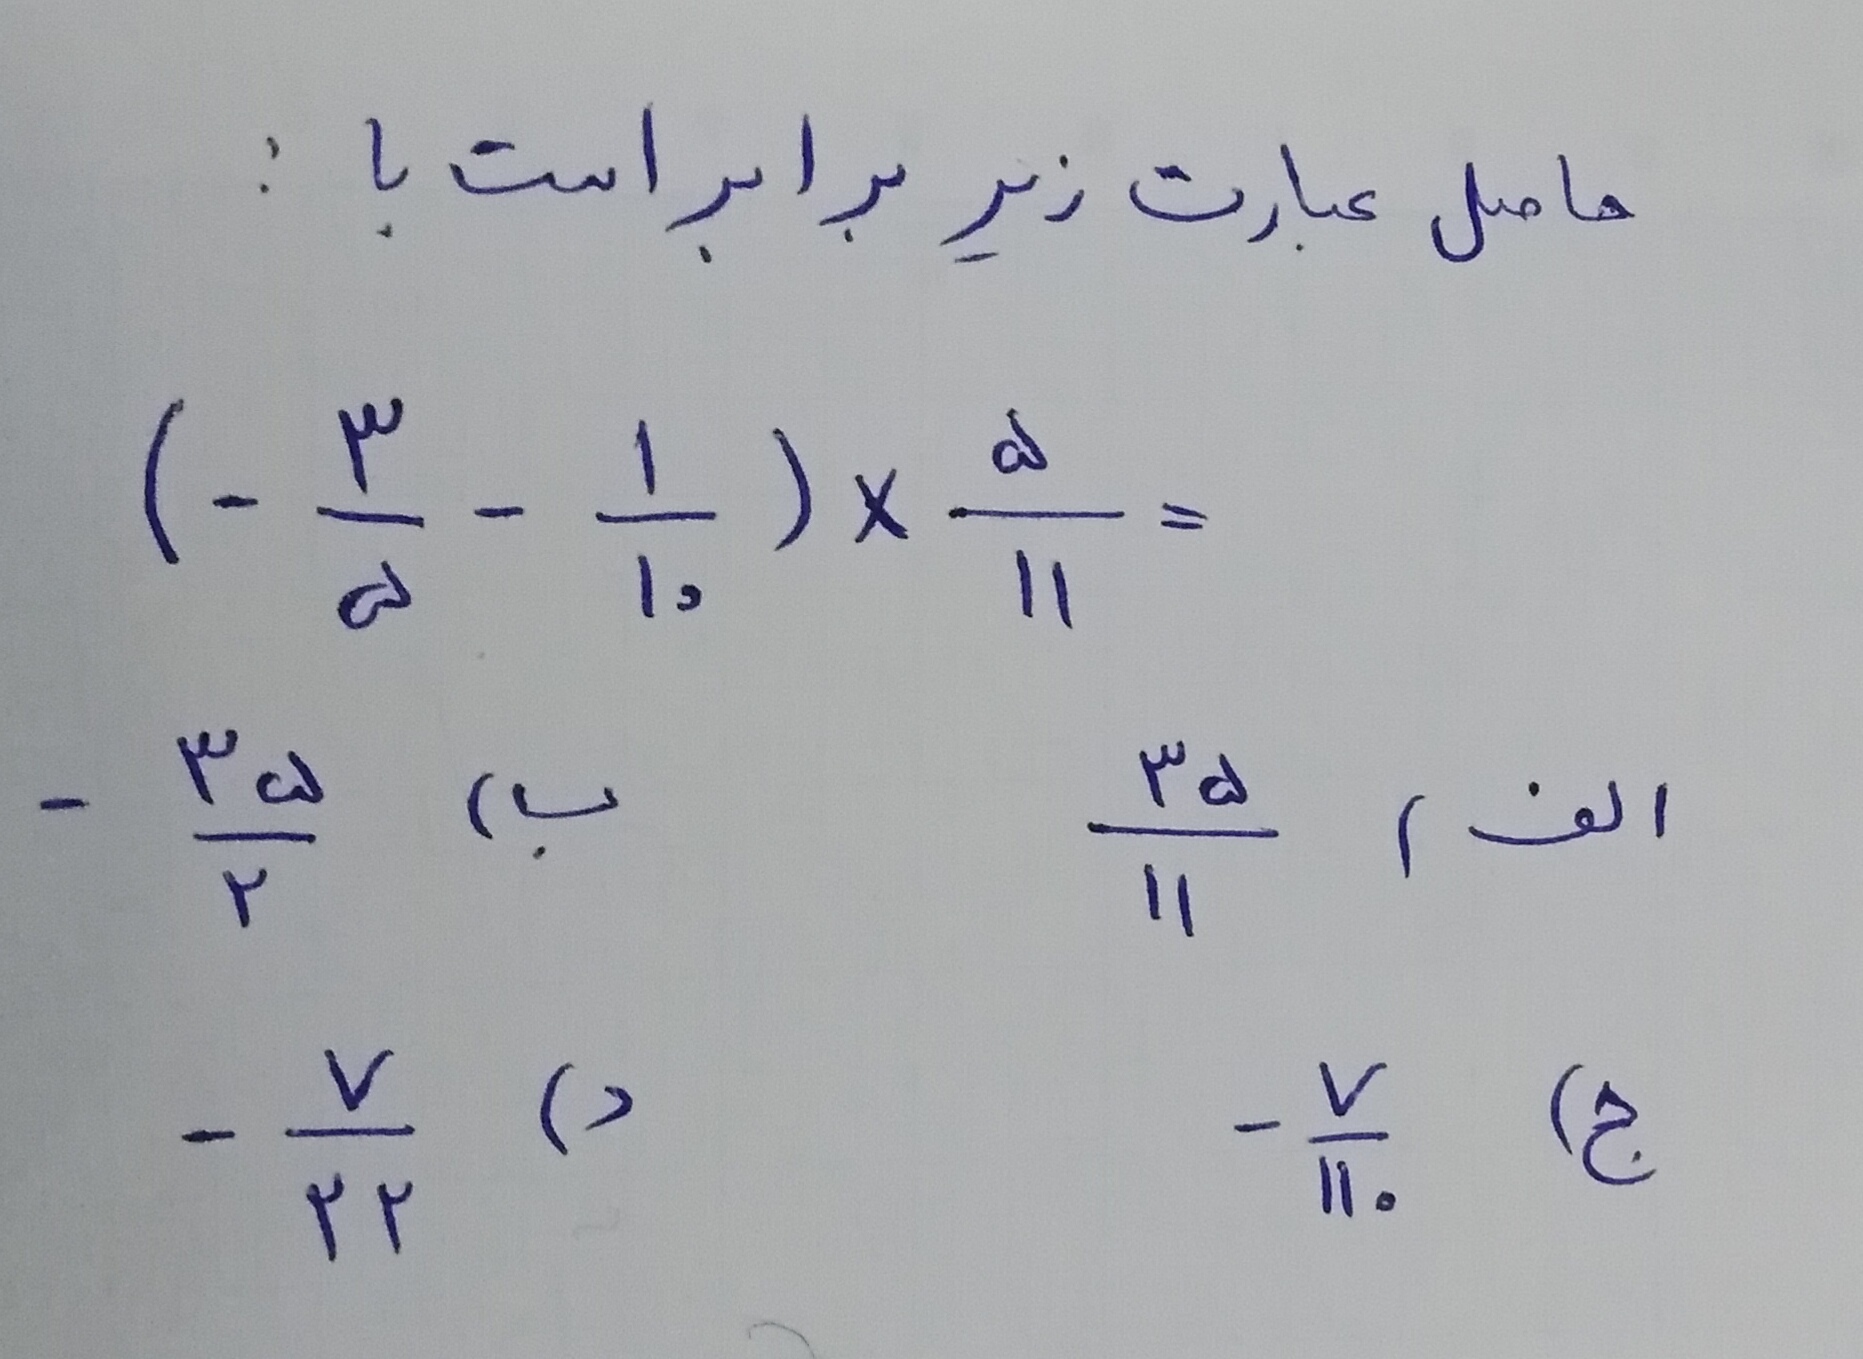 حاصل عبارت زیر برابر است با :
(- ۳/۵ - ۱/۱۰) × ۵/۱۱ =
الف) ۳۵/۱۱ ب) - ۳۵/۲
ج) - ۷/۱۱۰ د) - ۷/۲۲